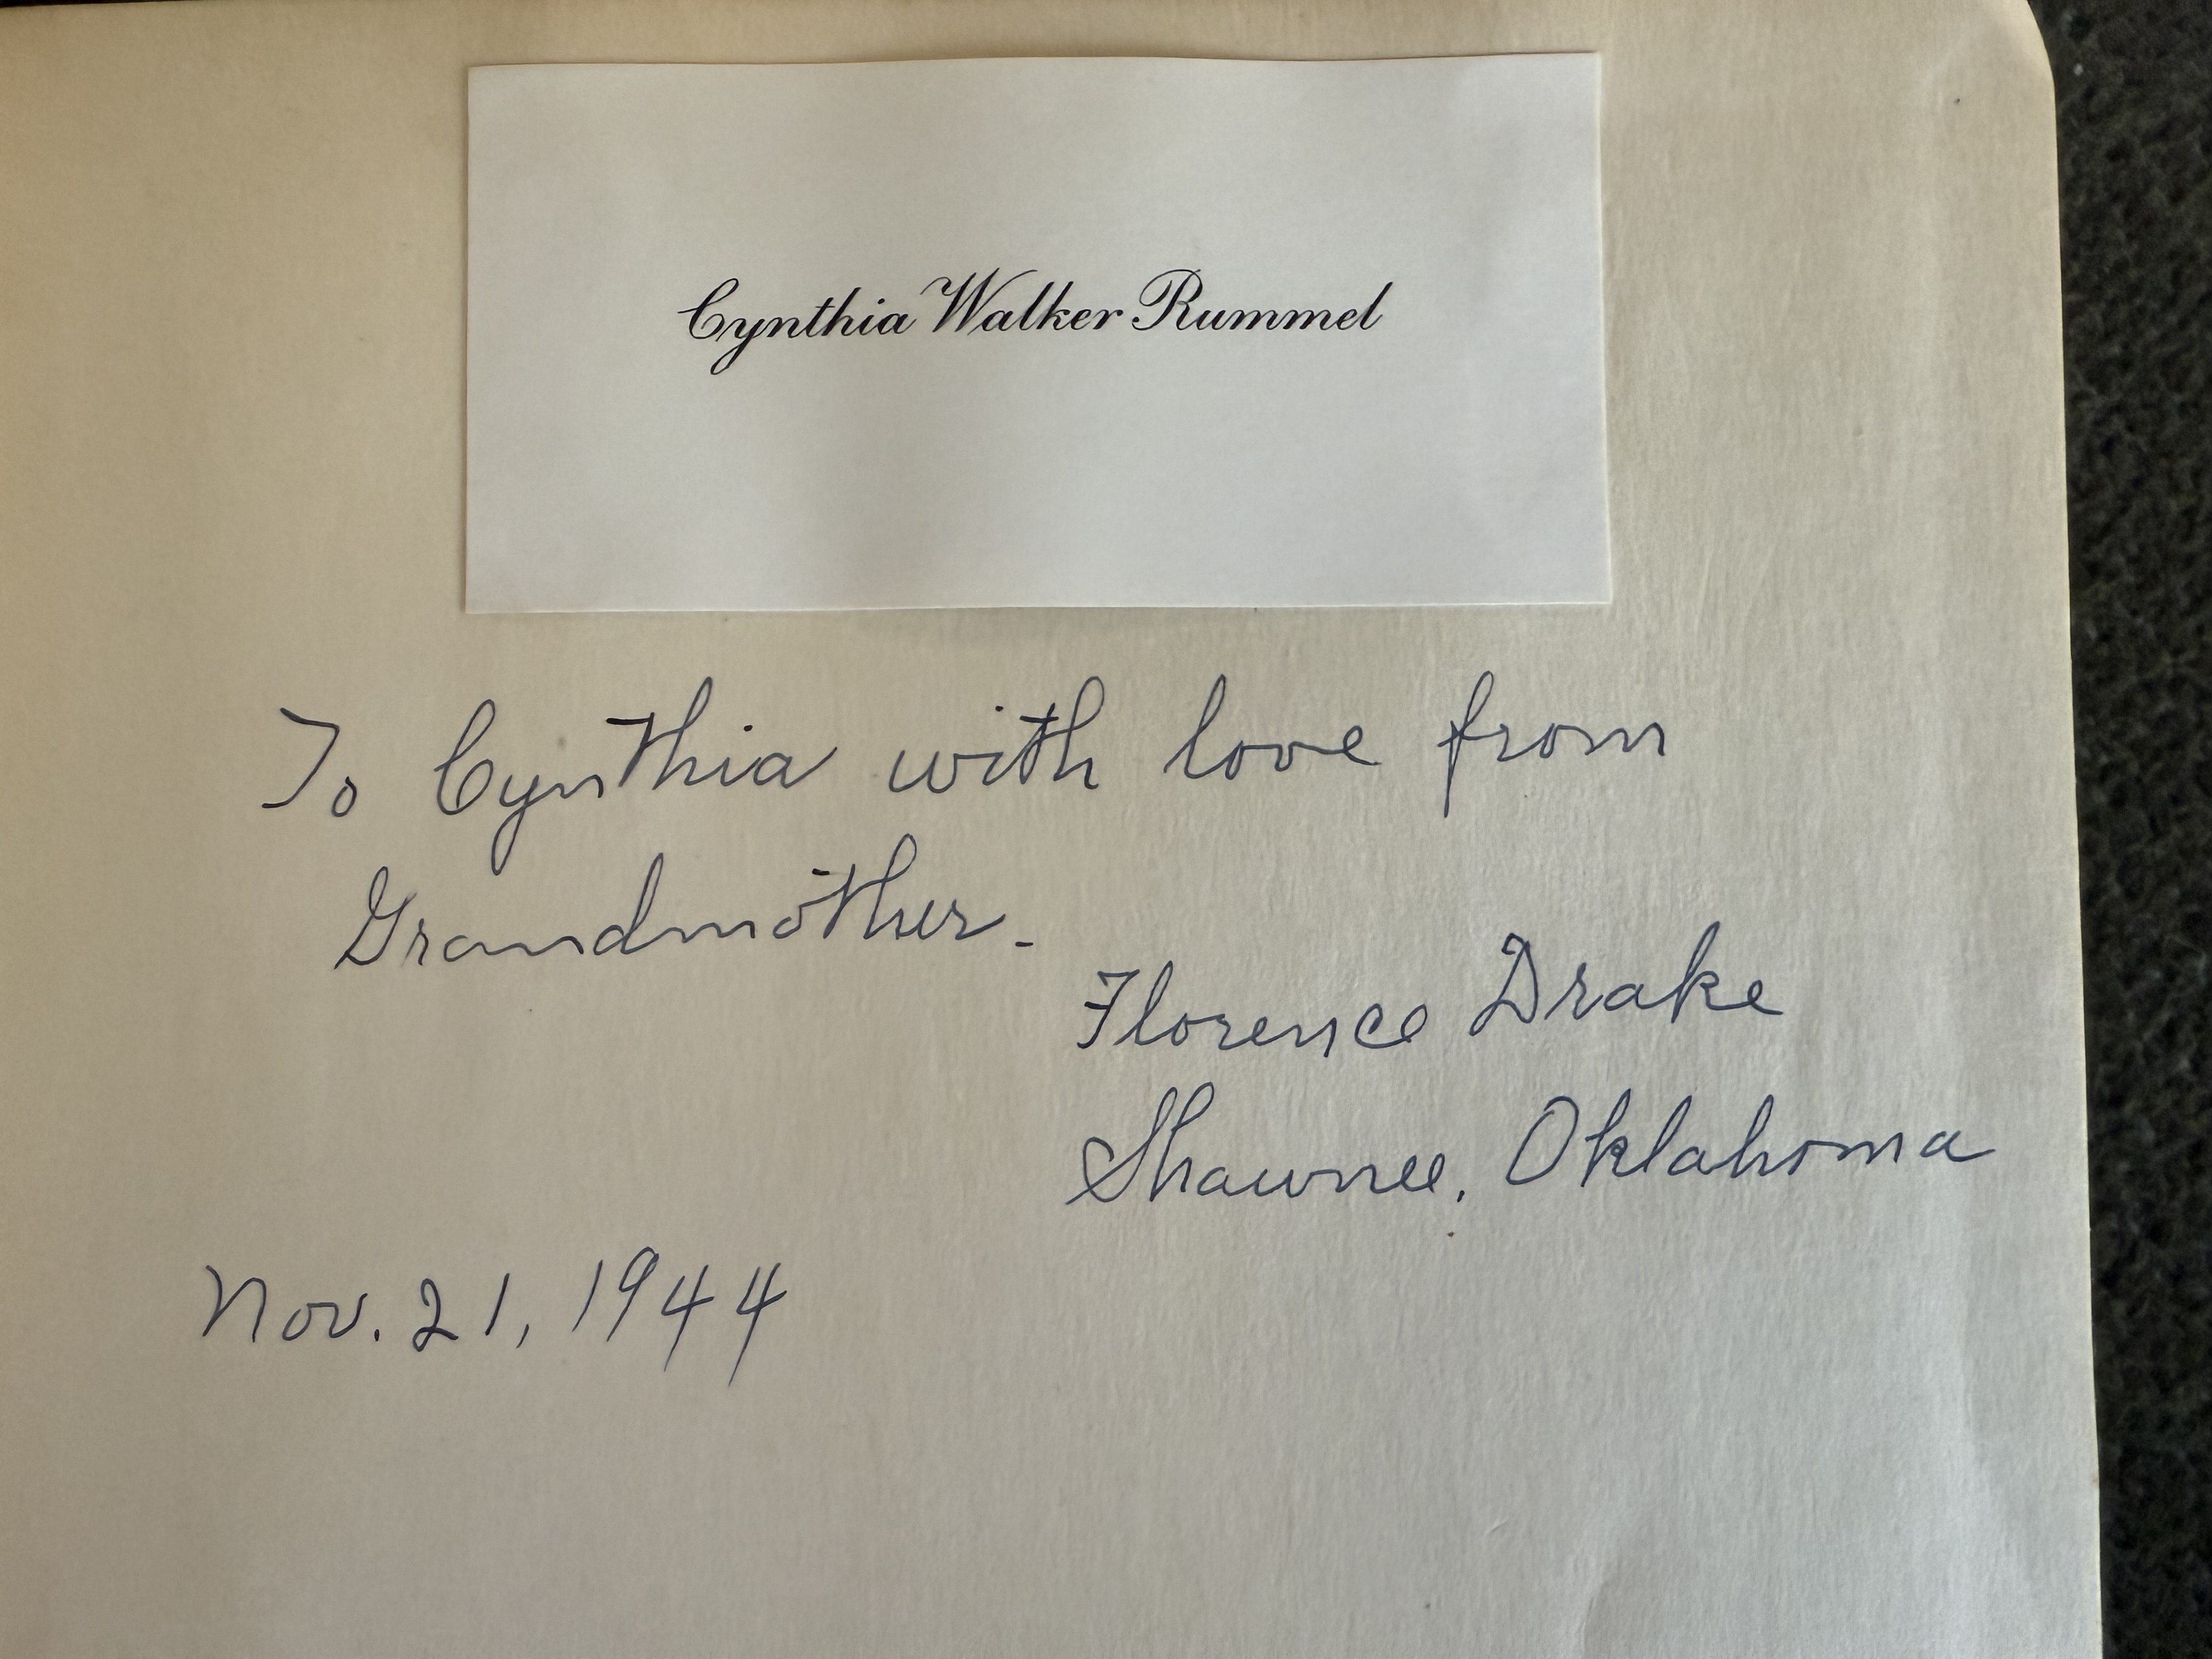 Cynthia Walker Rummel
To Cynthia with love from
Grandmother.
Florence Drake
Shawnee, Oklahoma
Nov. 21, 1944